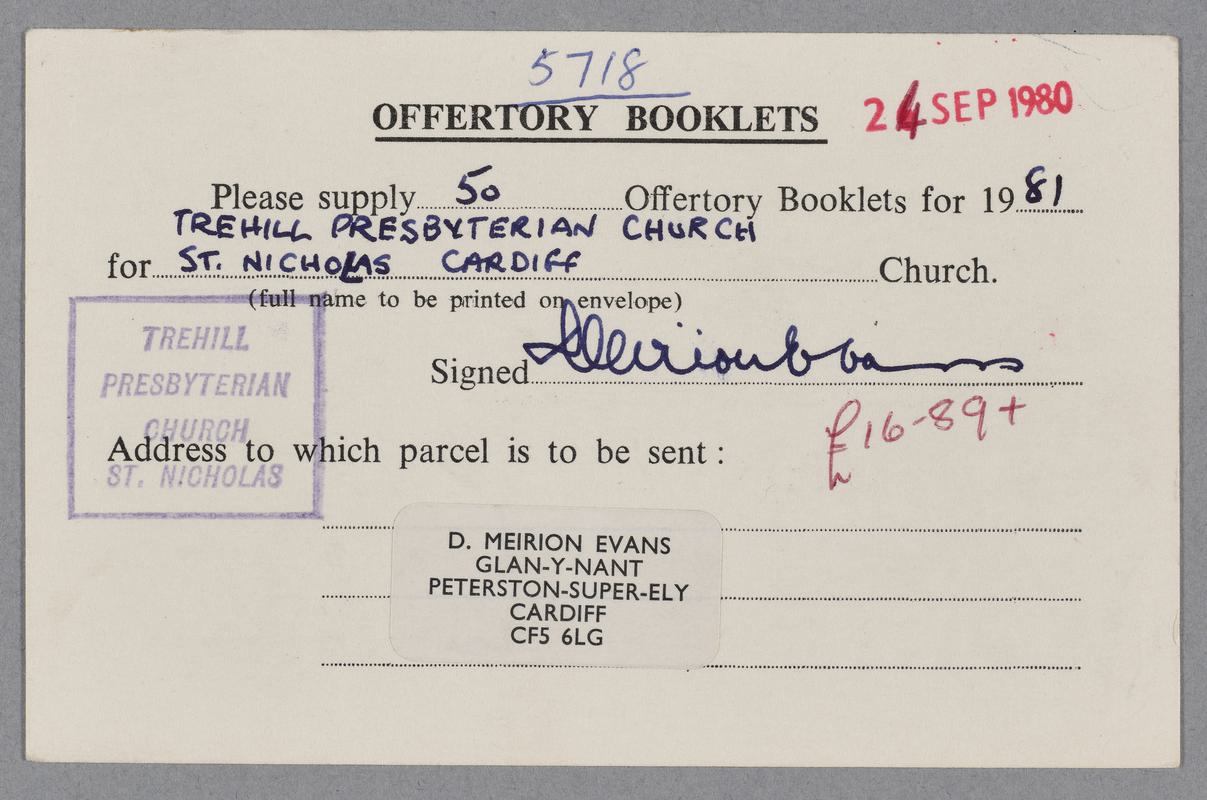 5718
OFFERTORY BOOKLETS
24 SEP 1980
Please supply 50 Offertory Booklets for 1981
TREHILL PRESBYTERIAN CHURCH
for ST. NICHOLAS CARDIFF Church.
(full name to be printed on envelope)
Signed D Meirion Evans
TREHILL
PRESBYTERIAN
CHURCH
ST. NICHOLAS
£16-89+
Address to which parcel is to be sent :
D. MEIRION EVANS
GLAN-Y-NANT
PETERSTON-SUPER-ELY
CARDIFF
CF5 6LG